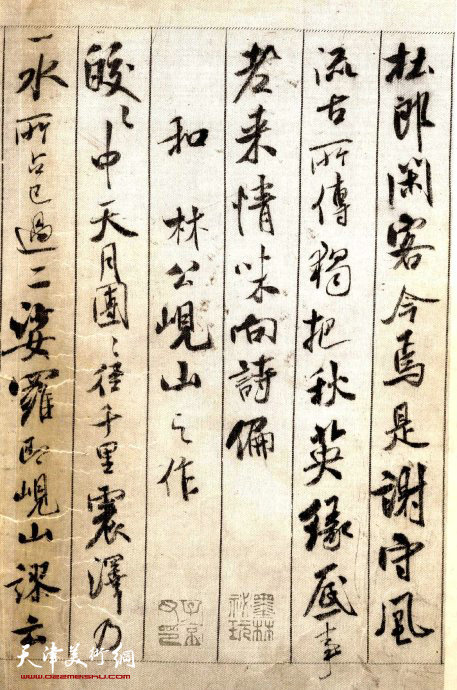 杜郎閑客今焉是謝守風
流古所傳獨把秋英緣底事
老来情味向詩偏
和林公峴山之作
皎々中天月團々径千里震澤乃
一水所占已過二娑羅即峴山謬云
天津美術網
www.022meishu.com